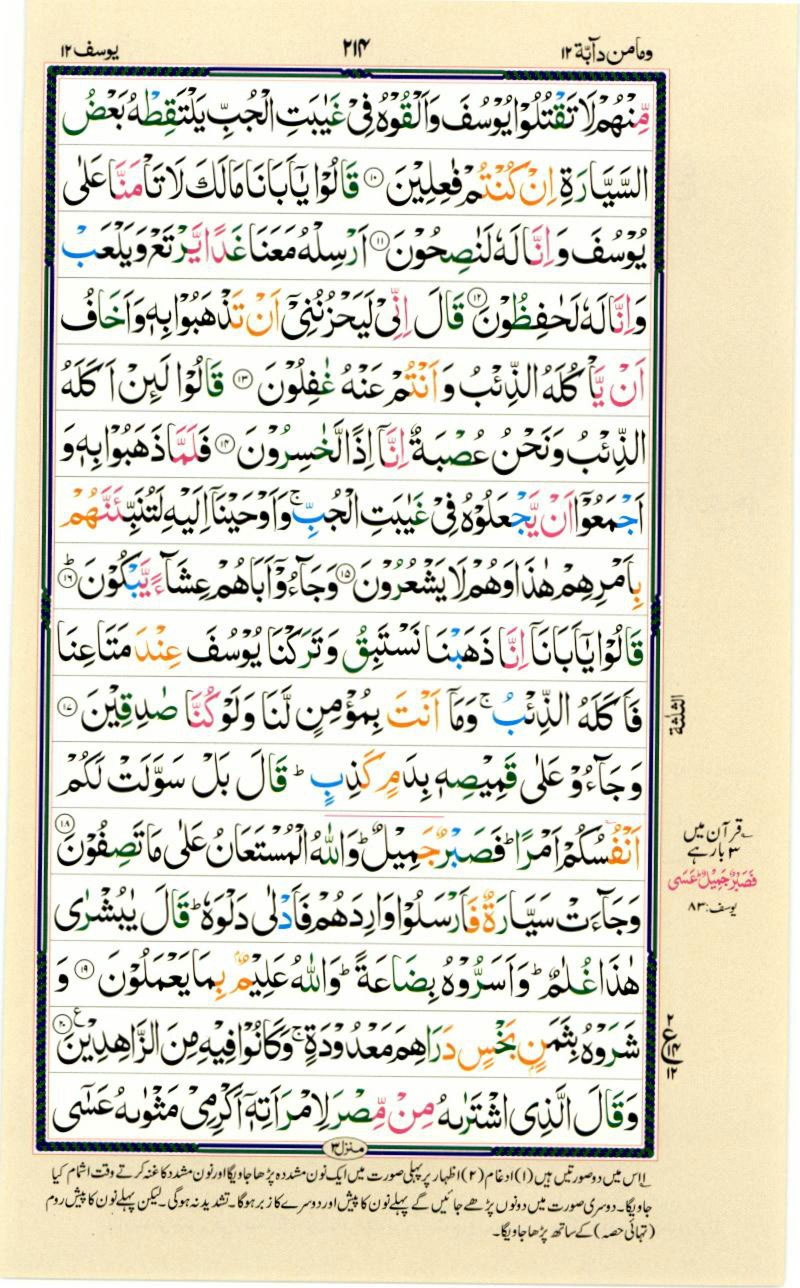 وما من دآبة ۱۲
۲۱۴
یوسف ۱۲
مِّنْهُمْ لَا تَقْتُلُوْا يُوْسُفَ وَاَلْقُوْهُ فِيْ غَيٰبَتِ الْجُبِّ يَلْتَقِطْهُ بَعْضُ
السَّيَّارَةِ اِنْ كُنْتُمْ فٰعِلِيْنَ ۱۰ قَالُوْا يٰٓاَبَانَا مَالَكَ لَا تَاْمَنَّا عَلٰى
يُوْسُفَ وَاِنَّا لَهٗ لَنٰصِحُوْنَ ۱۱ اَرْسِلْهُ مَعَنَا غَدًا يَّرْتَعْ وَيَلْعَبْ
وَاِنَّا لَهٗ لَحٰفِظُوْنَ ۱۲ قَالَ اِنِّيْ لَيَحْزُنُنِيْٓ اَنْ تَذْهَبُوْا بِهٖ وَاَخَافُ
اَنْ يَّاْكُلَهُ الذِّئْبُ وَاَنْتُمْ عَنْهُ غٰفِلُوْنَ ۱۳ قَالُوْا لَئِنْ اَكَلَهُ
الذِّئْبُ وَنَحْنُ عُصْبَةٌ اِنَّآ اِذًا لَّخٰسِرُوْنَ ۱۴ فَلَمَّا ذَهَبُوْا بِهٖ وَ
اَجْمَعُوْٓا اَنْ يَّجْعَلُوْهُ فِيْ غَيٰبَتِ الْجُبِّ ۚ وَاَوْحَيْنَآ اِلَيْهِ لَتُنَبِّئَنَّهُمْ
بِاَمْرِهِمْ هٰذَا وَهُمْ لَا يَشْعُرُوْنَ ۱۵ وَجَآءُوْٓ اَبَاهُمْ عِشَآءً يَّبْكُوْنَ ؕ ۱۶
قَالُوْا يٰٓاَبَانَآ اِنَّا ذَهَبْنَا نَسْتَبِقُ وَتَرَكْنَا يُوْسُفَ عِنْدَ مَتَاعِنَا
فَاَكَلَهُ الذِّئْبُ ۚ وَمَآ اَنْتَ بِمُؤْمِنٍ لَّنَا وَلَوْ كُنَّا صٰدِقِيْنَ ۱۷
وَجَآءُوْ عَلٰى قَمِيْصِهٖ بِدَمٍ كَذِبٍ ؕ قَالَ بَلْ سَوَّلَتْ لَكُمْ
اَنْفُسُكُمْ اَمْرًا ؕ فَصَبْرٌ جَمِيْلٌ ؕ وَاللّٰهُ الْمُسْتَعَانُ عَلٰى مَا تَصِفُوْنَ ۱۸
وَجَآءَتْ سَيَّارَةٌ فَاَرْسَلُوْا وَارِدَهُمْ فَاَدْلٰى دَلْوَهٗ ؕ قَالَ يٰبُشْرٰى
هٰذَا غُلٰمٌ ؕ وَاَسَرُّوْهُ بِضَاعَةً ؕ وَاللّٰهُ عَلِيْمٌۢ بِمَا يَعْمَلُوْنَ ۱۹ وَ
شَرَوْهُ بِثَمَنٍۢ بَخْسٍ دَرَاهِمَ مَعْدُوْدَةٍ ۚ وَكَانُوْا فِيْهِ مِنَ الزَّاهِدِيْنَ ۲۰ ع
وَقَالَ الَّذِي اشْتَرٰىهُ مِنْ مِّصْرَ لِامْرَاَتِهٖٓ اَكْرِمِيْ مَثْوٰىهُ عَسٰٓى
الثلٰثة
قرآن میں
۳ بار ہے
فَصَبْرٌ جَمِيْلٌ ؕ عَسَى
یوسف: ۸۳
۲
ع
۱۴
۱۲
منزل ۳
۱؎ اس میں دو صورتیں ہیں (۱) ادغام (۲) اظہار پر پہلی صورت میں ایک نون مشددہ پڑھا جاویگا اور نون مشدد کا غنہ کرتے وقت اشمام کیا
جاویگا۔ دوسری صورت میں دونوں پڑھے جائیں گے پہلے نون کا پیش اور دوسرے کا زبر ہوگا۔ تشدید نہ ہوگی۔ لیکن پہلے نون کا پیش روم
(تہائی حصہ) کے ساتھ پڑھا جاویگا۔